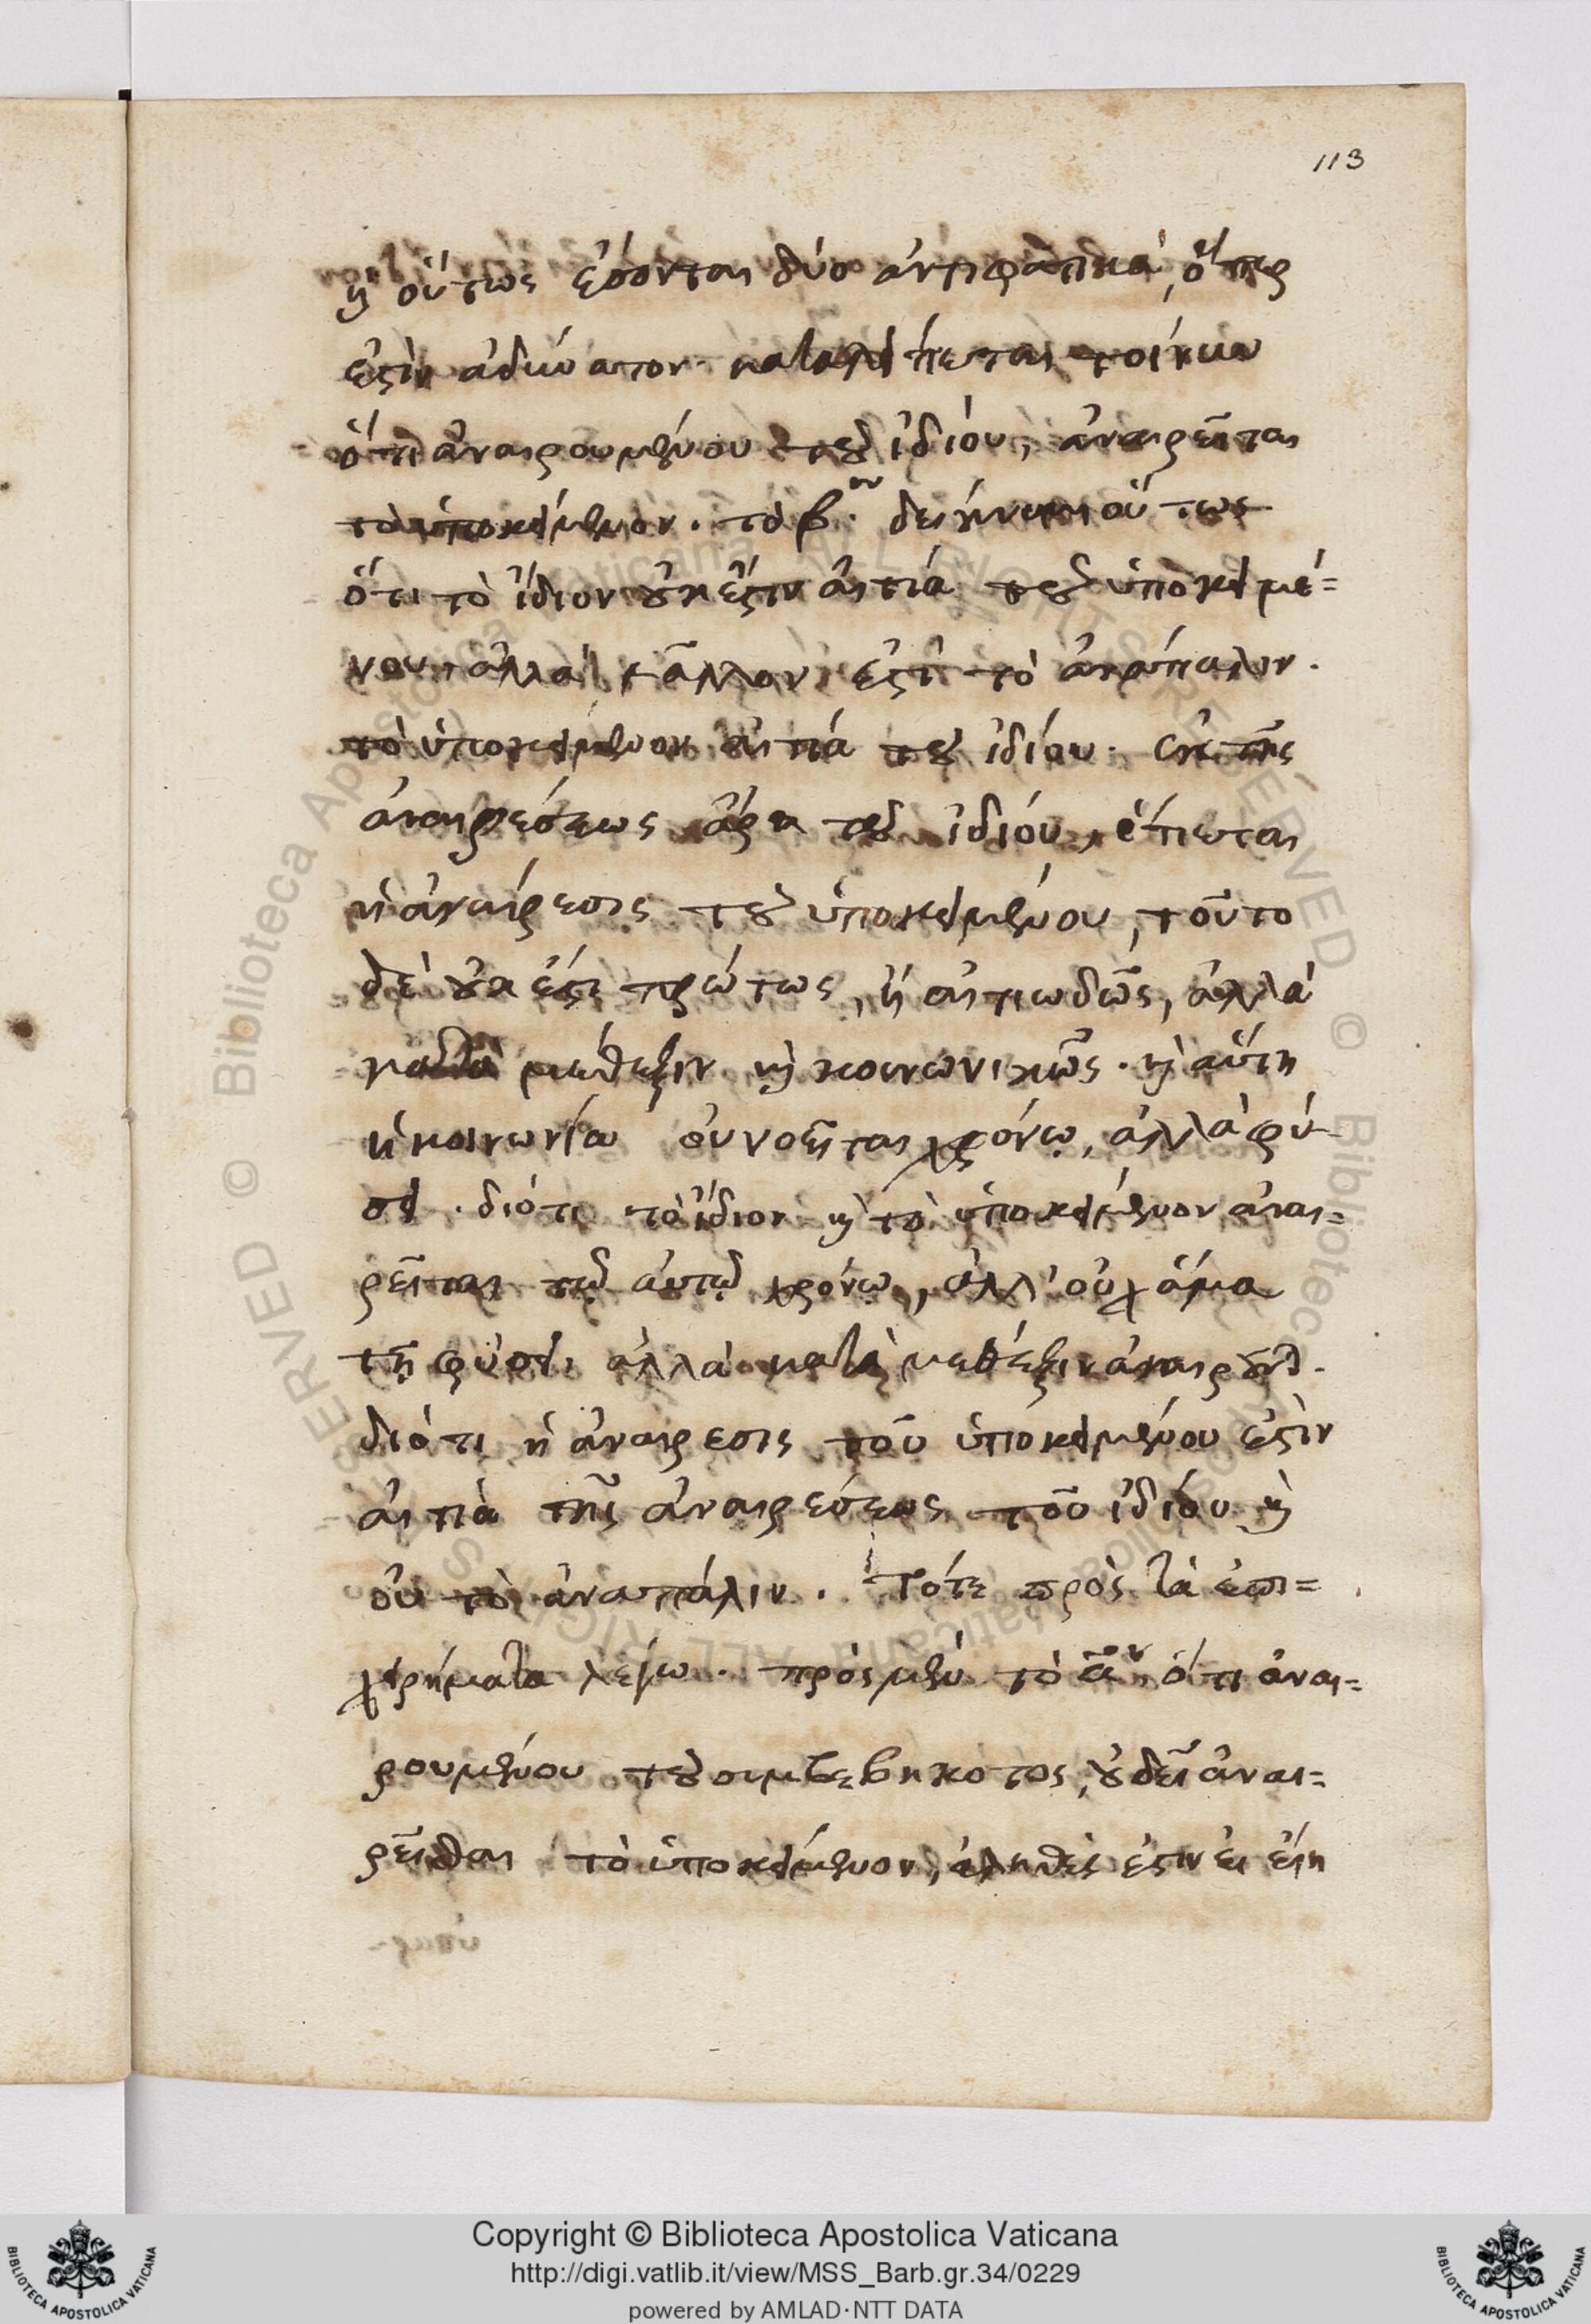 113
καὶ οὕτως ἔσονται δύο ἀντιφατικά, ὅπερ
ἐστὶν ἀδύνατον· καταλείπεται τοίνυν
ὅτι ἀναιρουμένου τοῦ ἰδίου, ἀναιρεῖται
τὸ ὑποκείμενον. τὸ βʹ.ον δείκνυται οὕτως
ὅτι τὸ ἴδιον οὐκ ἔστιν αἰτία τοῦ ὑποκειμέ=
νου, ἀλλὰ μᾶλλον ἐστὶ τὸ ἀνάπαλιν.
τὸ ὑποκείμενον αἰτία τοῦ ἰδίου. ἐκ τῆς
ἀναιρέσεως ἄρα τοῦ ἰδίου, ἕπεται
ἡ ἀναίρεσις τοῦ ὑποκειμένου, τοῦτο
δὲ οὐκ ἔστι πρώτως, ἢ αἰτιωδῶς, ἀλλὰ
κατὰ μέθεξιν καὶ κοινωνικῶς. καὶ αὕτη
ἡ κοινωνία οὐ νοεῖται χρόνῳ, ἀλλὰ φύ-
σει. διότι τὸ ἴδιον καὶ τὸ ὑποκείμενον ἀναι=
ρεῖται τῷ αὐτῷ χρόνῳ, ἀλλ' οὐχ ἅμα
τῇ φύσει, ἀλλὰ κατὰ μέθεξιν
διότι ἡ ἀναίρεσις τοῦ ὑποκειμένου ἐστὶν
αἰτία τῆς ἀναιρέσεως τοῦ ἰδίου καὶ
οὐ τὸ ἀναπάλιν. Τότε πρὸς τὰ ἐπι=
χειρήματα λέγω. πρὸς μὲν τὸ αον ὅτι ἀναι=
ρουμένου τοῦ συμβεβηκότος, οὐ δεῖ ἀναι=
ρεῖσθαι τὸ ὑποκείμενον, ἀληθές ἐστιν εἰ εἴη
Copyright © Biblioteca Apostolica Vaticana
http://digi.vatlib.it/view/MSS_Barb.gr.34/0229
powered by AMLAD·NTT DATA